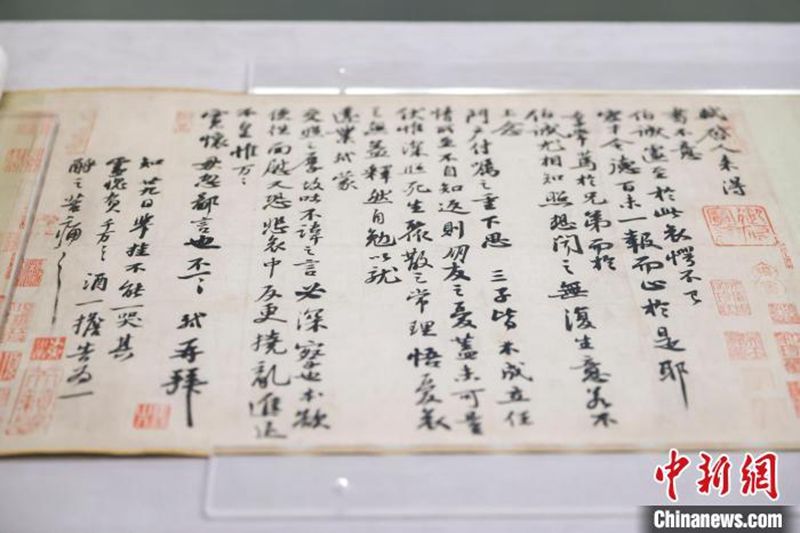 軾啓人來得
書不意
伯誠遽至於此哀愕不已
宏才令德百未一報而止於是耶
季常篤於兄弟而於
伯誠尤相知照想聞之無復生意若不
上念
門戶付囑之重下思三子皆未成立任
情所至不自知返則朋友之憂蓋未可量
伏惟深照死生聚散之常理悟憂哀
之無益釋然自勉以就
遠業軾蒙
交照之厚故吐不諱之言必深察也本欲
便往面慰又恐悲哀中反更撓亂進退
不皇惟萬〻
寬懷毋忽鄙言也不一〻軾再拜
知廿九日舉挂不能一哭其
靈愧負千萬〻酒一擔告為一
酹之苦痛〻
中新網
Chinanews.com